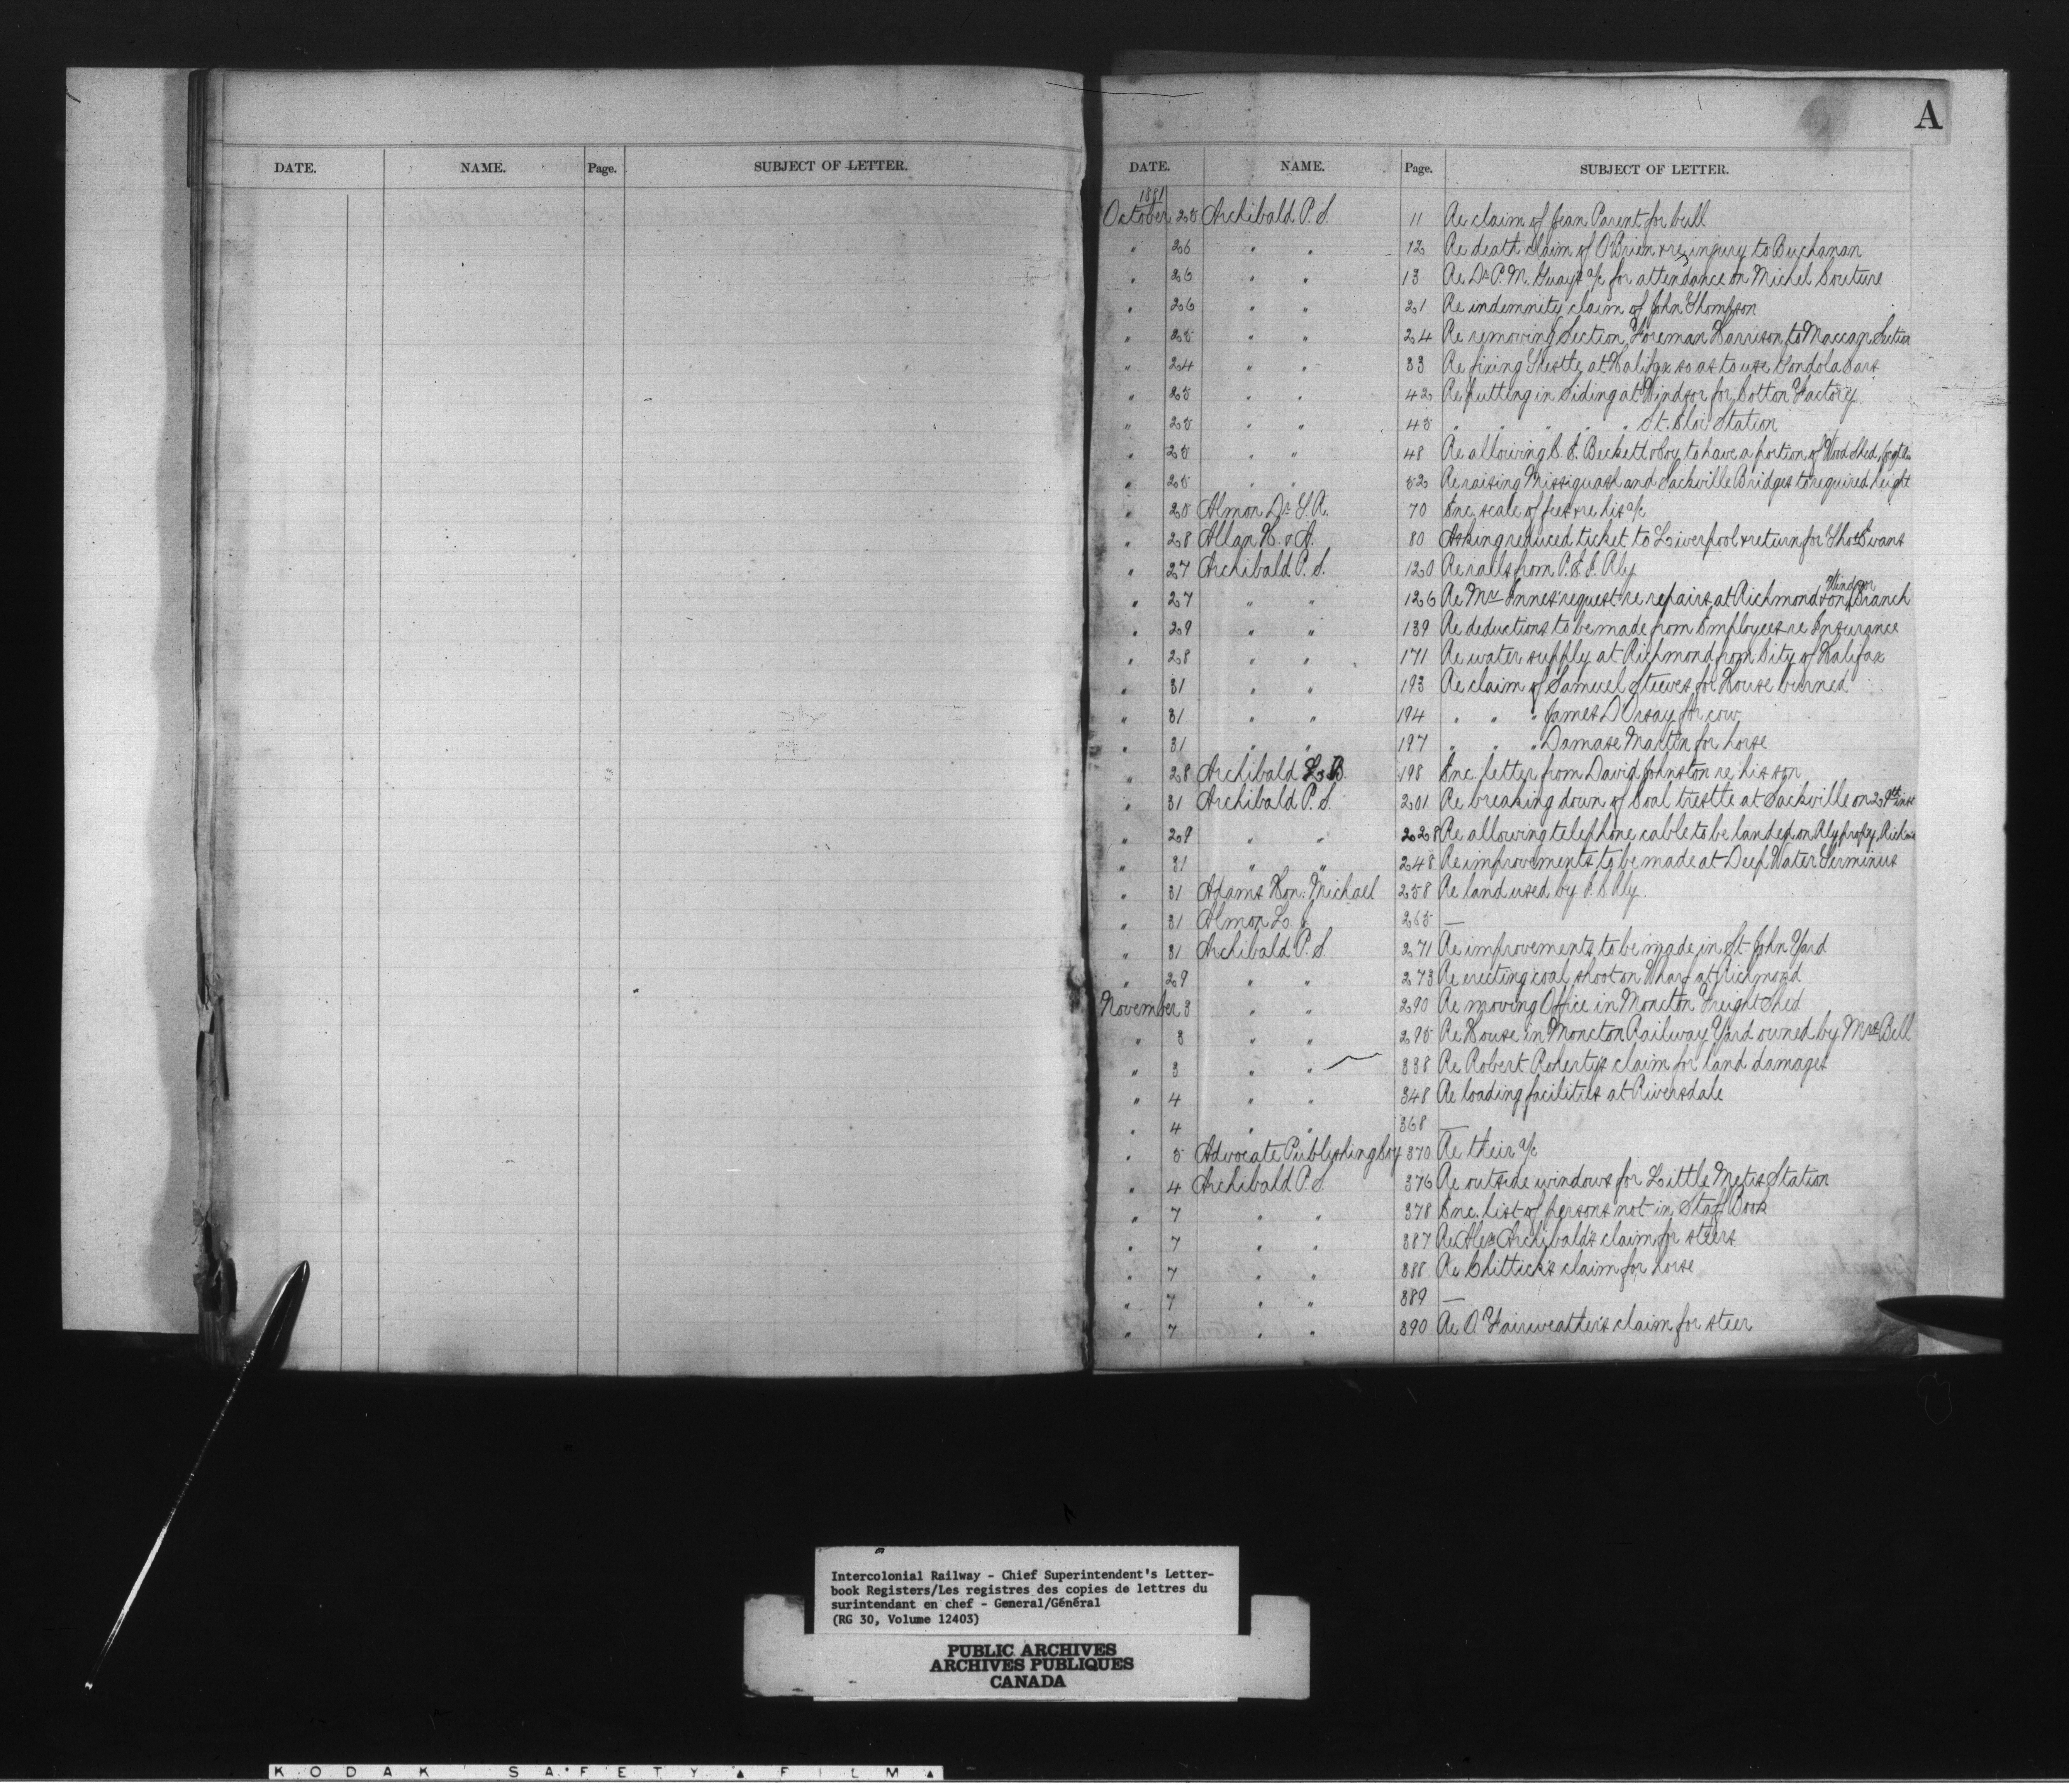 A
DATE. NAME. Page. SUBJECT OF LETTER.
DATE. NAME. Page. SUBJECT OF LETTER.
1881
October 25 Archibald P. S. 11 Re claim of Jean Parent for bull
" 26 " " 12 Re death claim of O'Brien & re injury to Buchanan
" 26 " " 13 Re Dr P. M. Guay's a/c for attendance on Michel Couture
" 26 " " 21 Re indemnity claim of John Thompson
" 25 " " 24 Re removing Section Foreman Harrison to Maccan Section
" 24 " " 33 Re fixing Trestle at Halifax so as to use Gondola Cars
" 25 " " 42 Re putting in Siding at Windsor for Cotton Factory
" 25 " " 45 " " " " " St. Eloi Station
" 25 " " 48 Re allowing Beckett & Coy to have a portion of Wood Shed
" 25 " " 52 Re raising Missiquash and Sackville Bridges to required height
" 28 Almon Dr 70 Enc. scale of fees re his a/c
" 28 Allan H. & A. 80 Asking reduced ticket to Liverpool & return for Thos Evans
" 27 Archibald P. S. 120 Re rails from P. E. I. Rly
" 27 " " 126 Re Mr Innes' request re repairs at Richmond & on Windsor Branch
" 29 " " 139 Re deductions to be made from Employees re Insurance
" 28 " " 171 Re water supply at Richmond from City of Halifax
" 31 " " 193 Re claim of Samuel Steeves for House burned
" 31 " " 194 " " " James D'Orsay for cow
" 31 " " 197 " " " Damase Martin for horse
" 28 Archibald L. B. 198 Enc. letter from David Johnston re his son
" 31 Archibald P. S. 201 Re breaking down of Coal trestle at Sackville on 29th inst
" 29 " " 228 Re allowing telephone cable to be landed on Rly propy
" 31 " " 248 Re improvements to be made at Deep Water Terminus
" 31 Adams Hon: Michael 258 Re land used by Rly.
" 31 Almon 265 —
" 31 Archibald P. S. 271 Re improvements to be made in St. John Yard
" 29 " " 273 Re erecting coal shoot on Wharf at Richmond
November 3 " " 290 Re moving Office in Moncton Freight Shed
" 3 " " 295 Re House in Moncton Railway Yard owned by Mrs Bell
" 3 " " 338 Re Robert Doherty's claim for land damages
" 4 " " 348 Re loading facilities at Riversdale
" 4 " " 368 —
" 5 Advocate Publishing Coy 370 Re their a/c
" 4 Archibald P. S. 376 Re outside windows for Little Metis Station
" 7 " " 378 Enc. list of persons not in Staff Book
" 7 " " 387 Re Alex Archibald's claim for steers
" 7 " " 388 Re Chittick's claim for horse
" 7 " " 389 —
" 7 " " 390 Re O. Fairweather's claim for steer
Intercolonial Railway - Chief Superintendent's Letter-
book Registers/Les registres des copies de lettres du
surintendant en chef - General/Général
(RG 30, Volume 12403)
PUBLIC ARCHIVES
ARCHIVES PUBLIQUES
CANADA
KODAK SAFETY FILM